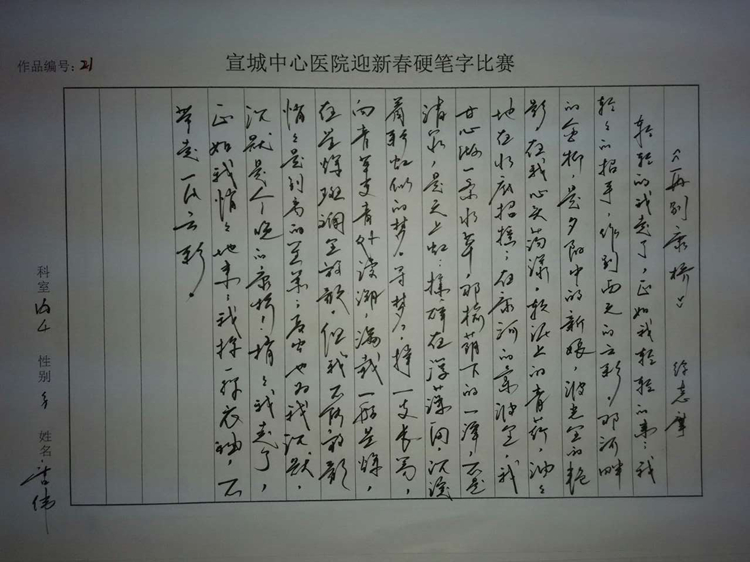 宣城中心医院迎新春硬笔字比赛
作品编号：21
《再别康桥》 徐志摩
轻轻的我走了，正如我轻轻的来；我
轻々的招手，作别西天的云彩。那河畔
的金柳是夕阳中的新娘，波光里的艳
影在我心头荡漾。软泥上的青荇，油々
地在水底招摇；在康河的柔波里，我
甘心做一条水草。那榆荫下的一潭，不是
清泉，是天上虹；揉碎在浮藻间，沉淀
着彩虹似的梦。寻梦？撑一支长篙，
向青草更青处漫溯，满载一船星辉，
在星辉斑斓里放歌。但我不能放歌
悄々是别离的笙箫；夏虫也为我沉默，
沉默是今晚的康桥！悄々我走了，
正如我悄々地来；我挥一挥衣袖，不
带走一片云彩。
科室 性别 姓名